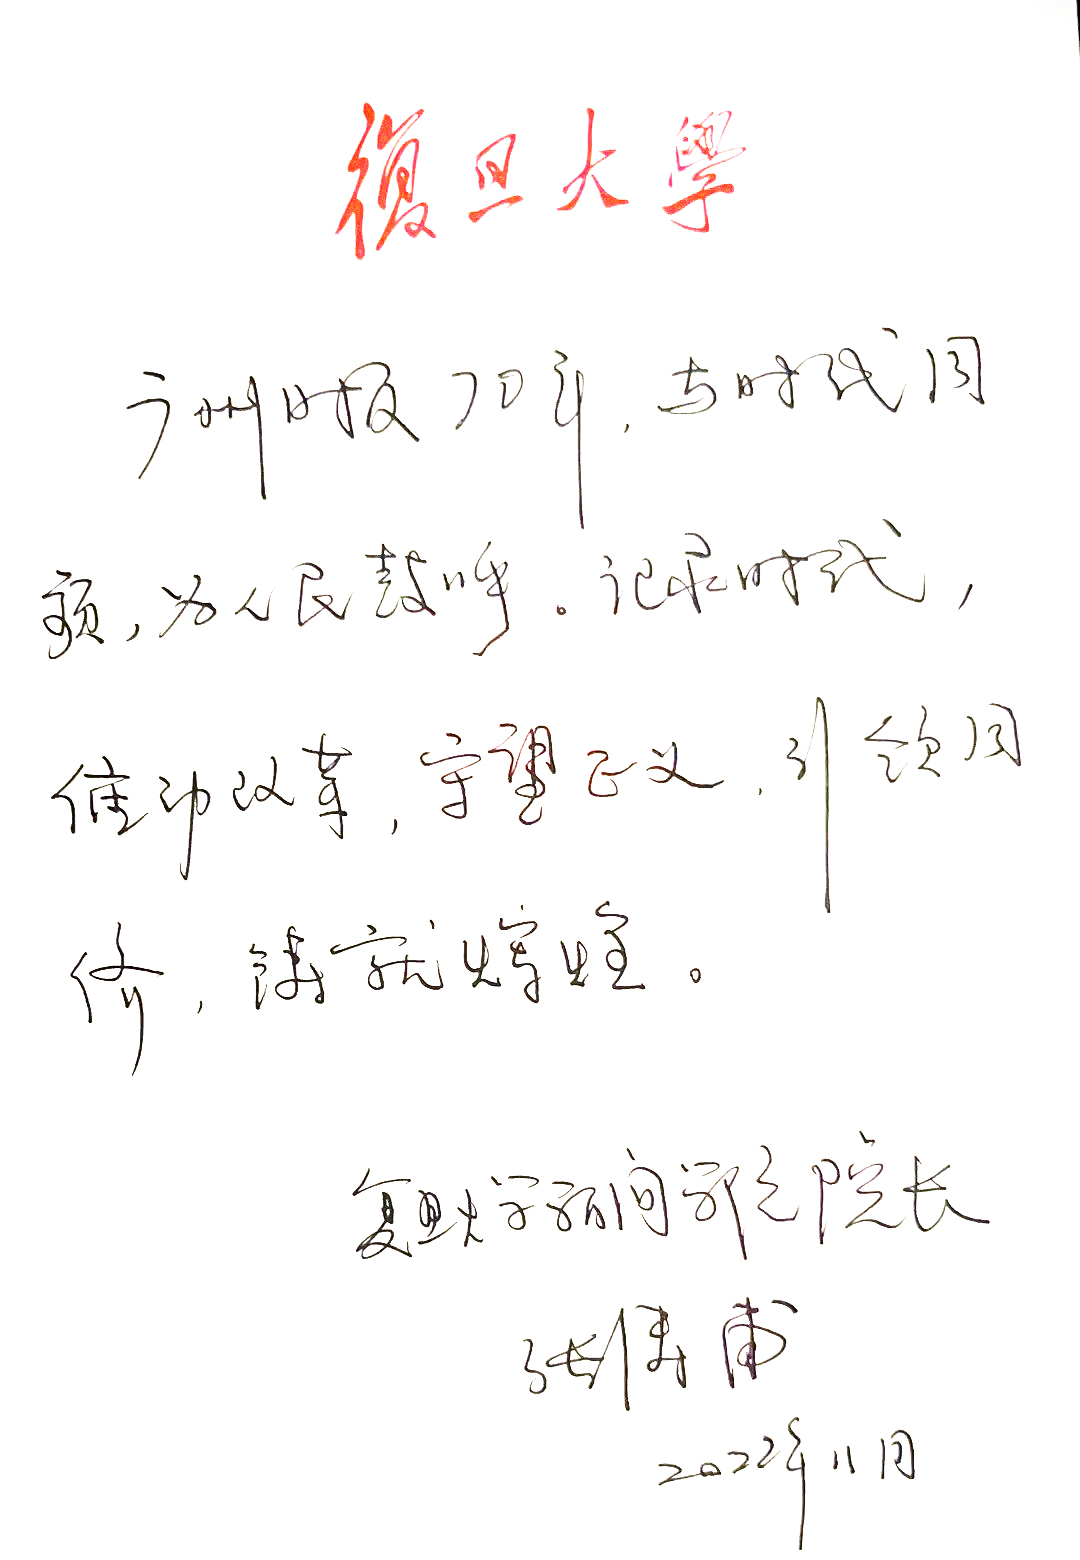 復旦大學
广州日报70年，与时代同
频，为人民鼓呼。记录时代，
催动改革，守望正义，引领同
侪，铸就辉煌。
复旦大学新闻学院院长
张涛甫
2022年11月